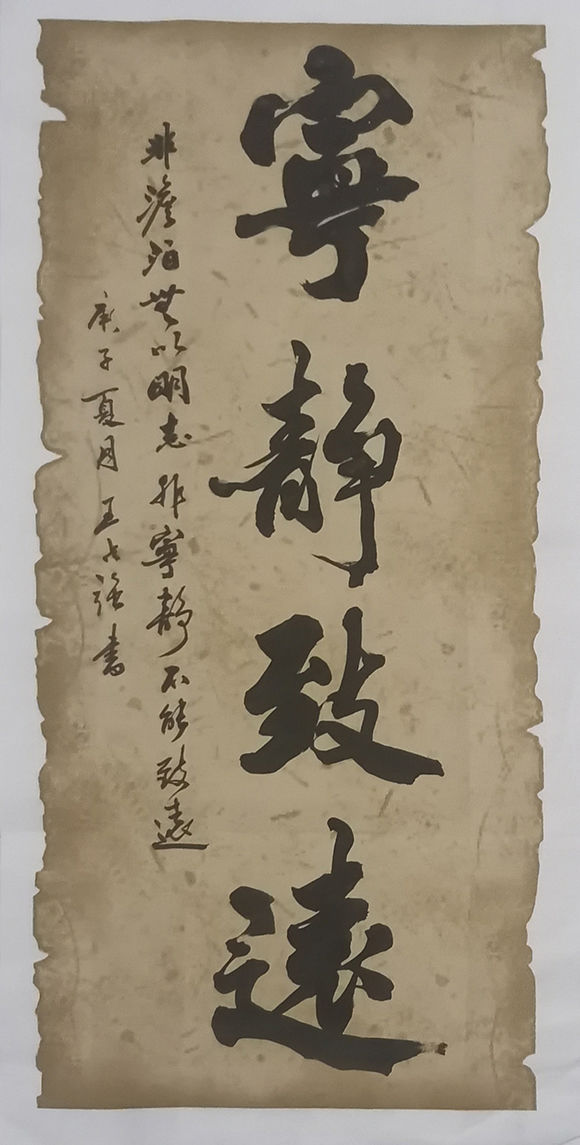 寧靜致遠
非澹泊無以明志非寧靜不能致遠
庚子夏月王占强書